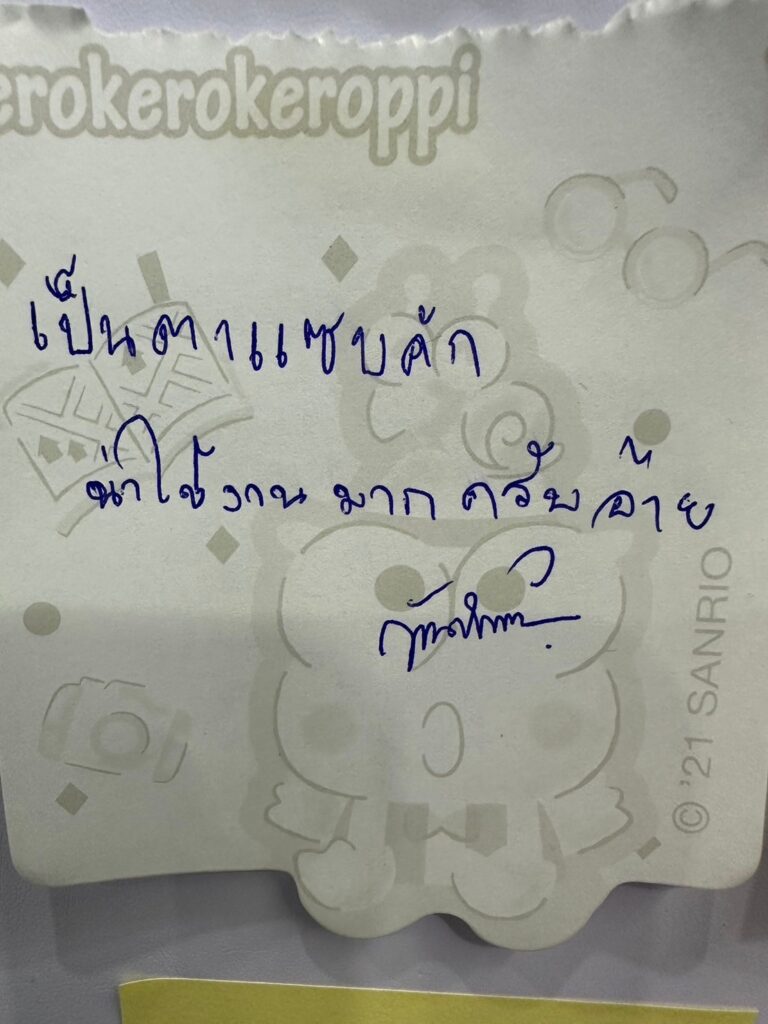 erokerokeroppi
เป็นตาแซบคัก
น่าใช้งานมากครับอ้าย
© '21 SANRIO